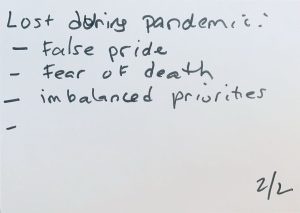 Lost during pandemic:
- False pride
- Fear of death
- imbalanced priorities
-
2/2